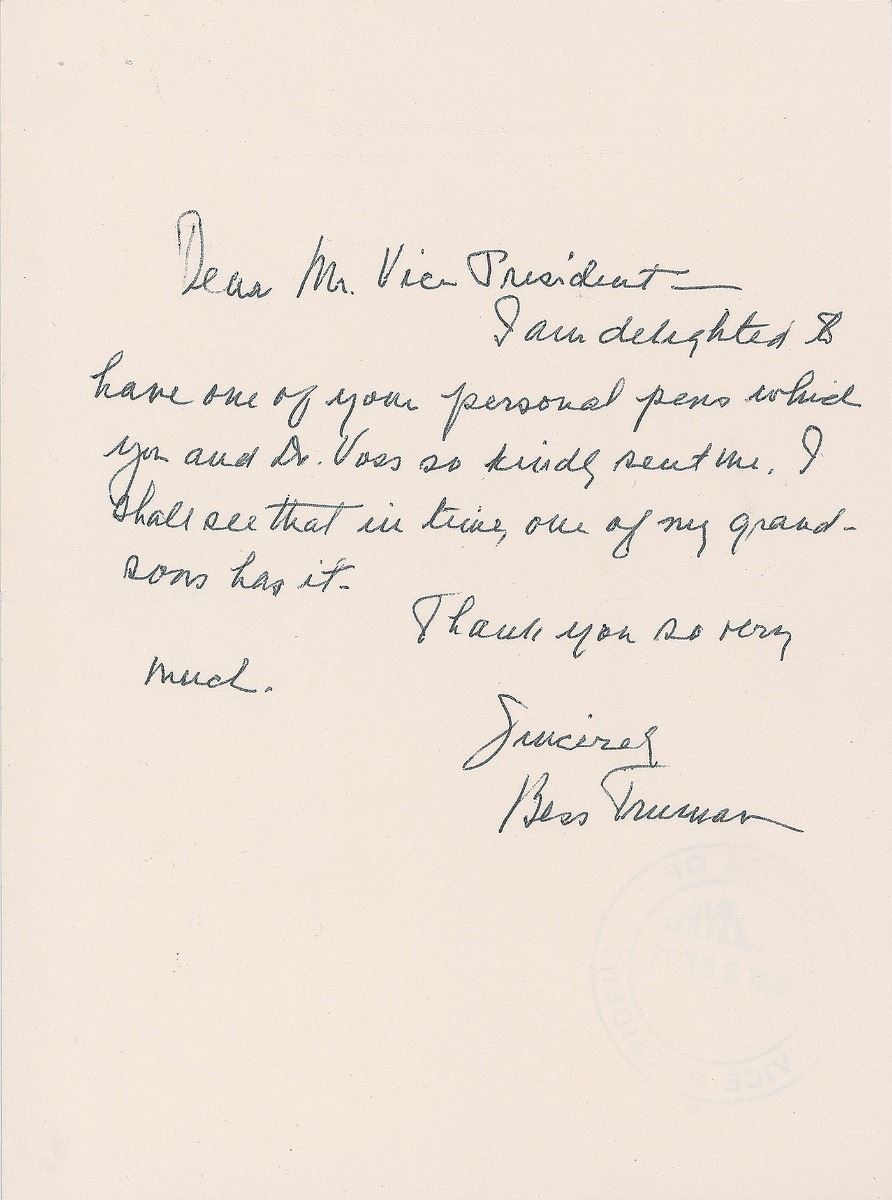 Dear Mr. Vice President —
I am delighted to
have one of your personal pens which
you and Dr. Voss so kindly sent me. I
shall see that in time, one of my grand-
sons has it.
Thank you so very
much.
Sincerely
Bess Truman
OF
VICE